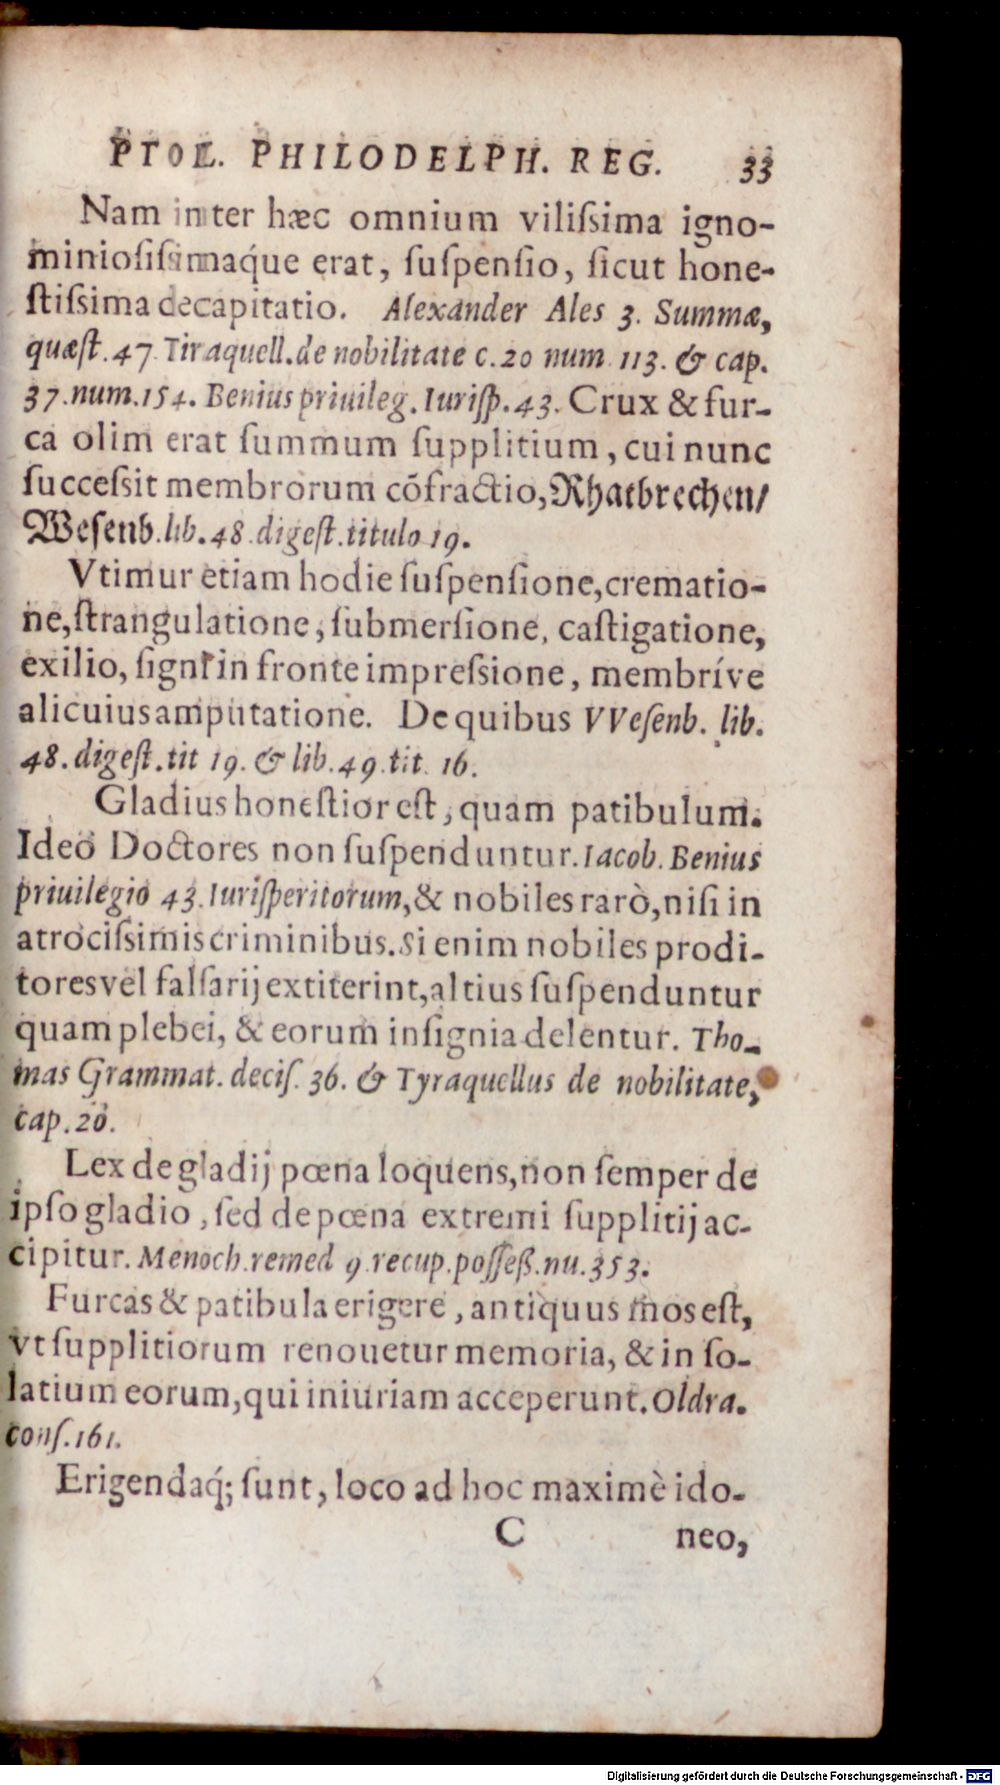 PTOL. PHILODELPH. REG. 33
Nam inter hæc omnium viliſsima igno-
minioſiſsimaq́ue erat, ſuſpenſio, ſicut hone-
ſtiſsima decapitatio. Alexander Ales 3. Summæ,
quæſt. 47. Tiraquell. de nobilitate c. 20 num 113. & cap.
37. num. 154. Benius priuileg. Iuriſp. 43. Crux & fur-
ca olim erat ſummum ſupplitium, cui nunc
ſucceſsit membrorum cõfractio, Rhatbrechen/
Weſenb. lib. 48. digeſt. titulo 19.
Vtimur etiam hodie ſuſpenſione, crematio-
ne, ſtrangulatione, ſubmerſione, caſtigatione,
exilio, ſigni in fronte impreſsione, membríve
alicuius amputatione. De quibus VVeſenb. lib.
48. digeſt. tit 19. & lib. 49. tit. 16.
Gladius honeſtior eſt, quam patibulum.
Ideò Doctores non ſuſpenduntur. Iacob. Benius
priuilegio 43. Iuriſperitorum, & nobiles rarò, niſi in
atrociſsimis criminibus. Si enim nobiles prodi-
tores vel falſarij extiterint, altius ſuſpenduntur
quam plebei, & eorum inſignia delentur. Tho-
mas Grammat. deciſ. 36. & Tyraquellus de nobilitate,
cap. 20.
Lex de gladij pœna loquens, non ſemper de
ipſo gladio, ſed de pœna extremi ſupplitij ac-
cipitur. Menoch. remed 9. recup. poſſeß. nu. 353.
Furcas & patibula erigere, antiquus mos eſt,
vt ſupplitiorum renouetur memoria, & in ſo-
latium eorum, qui iniuriam acceperunt. Oldra.
conſ. 161.
Erigendaq́; ſunt, loco ad hoc maximè ido-
C neo,
Digitalisierung gefördert durch die Deutsche Forschungsgemeinschaft - DFG